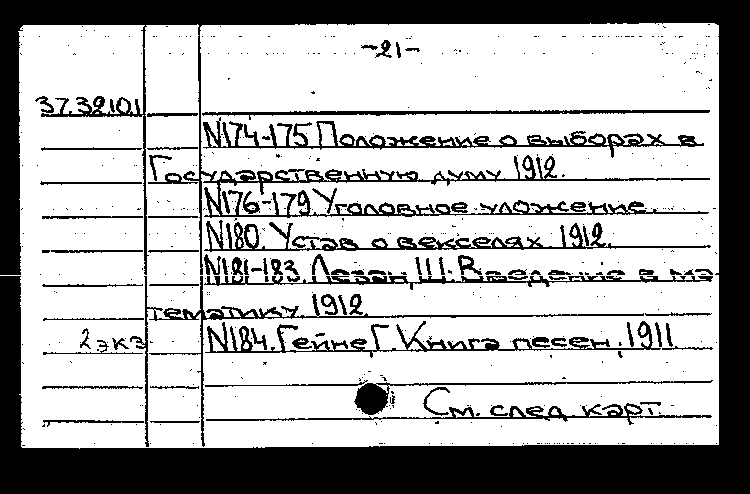 -21-
37.3210.1
N174-175 Положение о выборах в
Государственную думу 1912.
N176-179. Уголовное уложение.
N180. Устав о векселях. 1912.
N181-183. Лезан, Ш. Введение в ма-
тематику. 1912.
2 экз N184. Гейне, Г. Книга песен, 1911
См. след. карт.